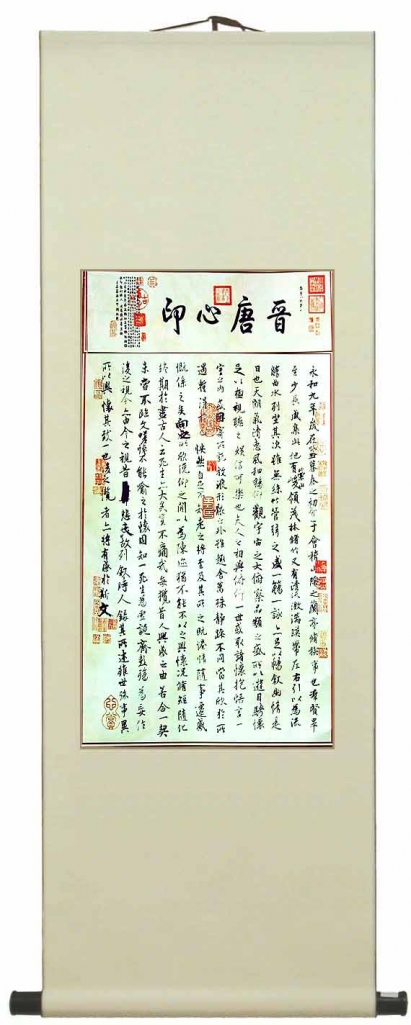 晉唐心印
永和九年歲在癸丑暮春之初會于會稽山陰之蘭亭脩稧事也羣賢畢
至少長咸集此地有崇山峻領茂林脩竹又有清流激湍暎帶左右引以為流
觴曲水列坐其次雖無絲竹管弦之盛一觴一詠亦足以暢敘幽情是
日也天朗氣清惠風和暢仰觀宇宙之大俯察品類之盛所以遊目騁懷
足以極視聽之娛信可樂也夫人之相與俯仰一世或取諸懷抱悟言一
室之內或因寄所託放浪形骸之外雖趣舍萬殊靜躁不同當其欣於所
遇暫得於己快然自足不知老之將至及其所之既惓情隨事遷感
慨係之矣向之所欣俛仰之間以為陳迹猶不能不以之興懷況脩短隨化
終期於盡古人云死生亦大矣豈不痛哉每攬昔人興感之由若合一契
未嘗不臨文嗟悼不能喻之於懷固知一死生為虛誕齊彭殤為妄作
後之視今亦由今之視昔悲夫故列敘時人錄其所述雖世殊事異
所以興懷其致一也後之攬者亦將有感於斯文